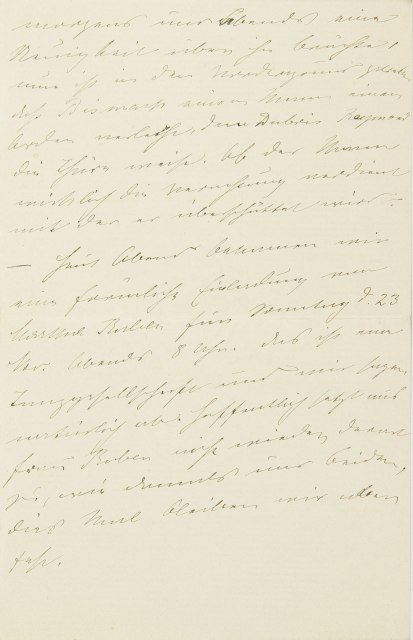 morgens und Abends eine
Neuigkeit über ihn brachte,
nun ist in den Vordergrund getreten
daß Bismarck einem Mann einen
Orden verleiht, dem Dubois Raymond
die Thüre weist. Ob der Mann
wirklich die Verachtung verdient
mit der er überschüttet wird? –
— Heut Abend bekamen wir
eine förmliche Einladung von
Robben für Sonntag d. 23
Abends 8 Uhr. Das ist eine
Tanzgesellschaft und wir sagen
natürlich ab. Hoffentlich setzt uns
Frau Robben nicht wieder darauf
zu, wie damals uns beiden,
dies Mal bleiben wir eben
fest.